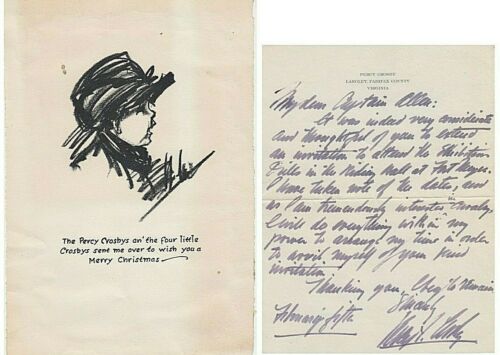 The Percy Crosbys an' the four little
Crosbys sent me over to wish you a
Merry Christmas
PERCY CROSBY
LANGLEY, FAIRFAX COUNTY
VIRGINIA
My dear Captain Allen:
It was indeed very considerate
and thoughtful of you to extend
an invitation to attend the Exhibition
in the Riding Hall at Fort Myer.
I have taken note of the dates, and as
I am tremendously interested in Cavalry
I will do everything within my
power to arrange my time in order
to avail myself of your kind
invitation.
Thanking you, I beg to remain
Sincerely
February fifth
Percy L. Crosby